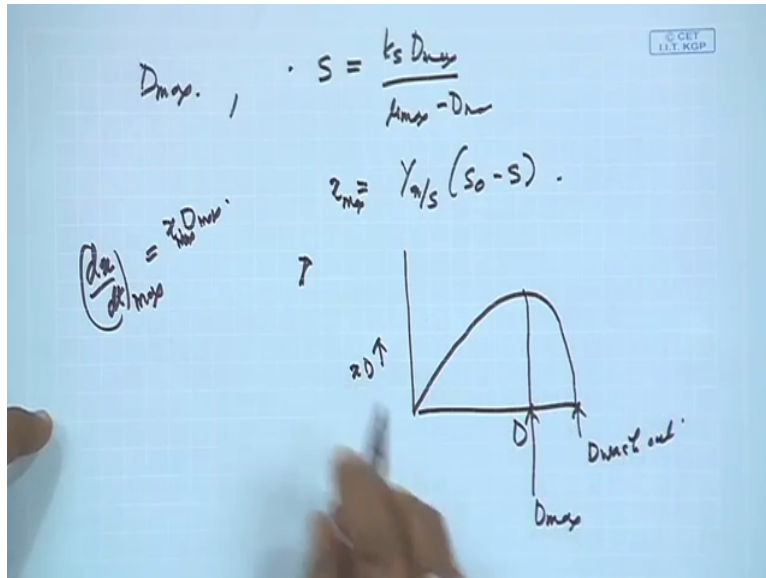 © CET
I.I.T. KGP
Dmax. , · S = ks Dmax / μmax - Dmax
xmax = Yx/s (S0 - S) .
(dx/dt)max = xmax Dmax.
↑
xD ↑
D
D wash out.
Dmax